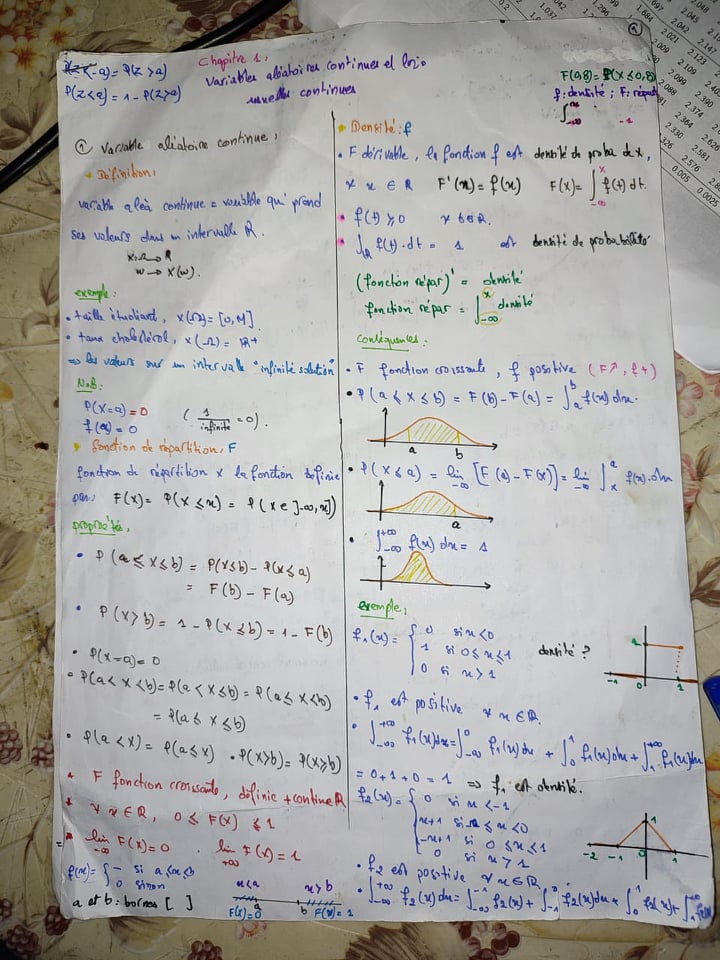 P(Z<-a) = P(Z>a)
P(Z<a) = 1 - P(Z>a)
Chapitre 1:
Variables aléatoires continues et lois
usuelles continues
F(0,8) = P(X ≤ 0,8)
f: densité; F: répart
① Variable aléatoire continue:
Définition:
variable aléa continue = variable qui prend
ses valeurs dans un intervalle ℝ.
X: Ω → ℝ
w → X(w).
exemple:
• taille étudiant, X(Ω) = [0, M]
• taux cholestérol, X(Ω) = ℝ+
⇒ les valeurs sur un intervalle "infinité solution"
N.B:
P(X=a) = 0 ( 1/infinité = 0 ).
f(a) = 0
• fonction de répartition: F
fonction de répartition X la fonction définie
par: F(x) = P(X ≤ x) = P(X ∈ ]-∞, x])
propriété:
• P(a ≤ X ≤ b) = P(X ≤ b) - P(X ≤ a)
= F(b) - F(a)
• P(X > b) = 1 - P(X ≤ b) = 1 - F(b)
• P(X=a) = 0
• P(a < X < b) = P(a < X ≤ b) = P(a ≤ X < b)
= P(a ≤ X ≤ b)
• P(a < X) = P(a ≤ X) • P(X > b) = P(X ≥ b)
* F fonction croissante, définie + continue ℝ
* ∀ x ∈ ℝ, 0 ≤ F(X) ≤ 1
* lim -∞ F(X) = 0 . lim +∞ F(X) = 1
f(x) = { - si a ≤ x ≤ b
0 sinon
a et b: bornes [ ]
x < a x > b
a b
F(x) = 0 F(x) = 1
• Densité: f
• F dérivable, la fonction f est densité de proba de X,
∀ x ∈ ℝ F'(x) = f(x) F(x) = ∫_{-∞}^{x} f(t) dt.
• f(t) ≥ 0 ∀ t ∈ ℝ.
• ∫_ℝ f(t) · dt = 1 est densité de probabilité
(fonction répar)' = densité
fonction répar = ∫_{-∞}^{x} densité
Conséquences:
• F fonction croissante, f positive (F↗, f +)
• P(a ≤ X ≤ b) = F(b) - F(a) = ∫_a^b f(x) dx.
a b
• P(X ≤ a) = lim -∞ [F(a) - F(x)] = lim -∞ ∫_x^a f(x) . dx
a
• ∫_{-∞}^{+∞} f(x) dx = 1
exemple:
f₁(x) = { 0 si x < 0
1 si 0 ≤ x ≤ 1 densité ?
0 si x > 1
1
-1 0 1
• f₁ est positive ∀ x ∈ ℝ.
• ∫_{-∞}^{+∞} f₁(x) dx = ∫_{-∞}^{0} f₁(x) dx + ∫_0^1 f₁(x) dx + ∫_1^{+∞} f₁(x) dx
= 0 + 1 + 0 = 1 ⇒ f₁ est densité.
f₂(x) = { 0 si x < -1
x+1 si ≤ x < 0
-x+1 si 0 ≤ x ≤ 1
0 si x > 1
-2 -1 0 1
• f₂ est positive ∀ x ∈ ℝ
• ∫_{-∞}^{+∞} f₂(x) dx = ∫_{-∞}^{-1} f₂(x) + ∫_{-1}^{0} f₂(x) dx + ∫_0^1 f₂(x) +